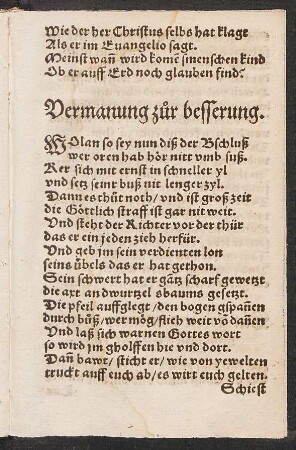 Wie der her Christus selbs hat klagt
Als er im Euangelio sagt.
Meinst wañ wird komē smenschen kind
Ob er auff Erd noch glauben find?
Vermanung zůr besserung.
WOlan so sey nun diß der Bschluß
wer oren hab hör nitt vmb suß.
Ker sich mit ernst in schneller yl
vnd setz seinr buß nit lenger zyl.
Dann es thůt noth/ vnd ist groß zeit
die Göttlich straff ist gar nit weit.
Vnd steht der Richter vor der thür
das er ein jeden zieh herfür.
Vnd geb jm sein verdienten lon
seins übels das er hat gethon.
Sein schwert hat er gātz scharf gewetzt
die axt an dwurtzel sbaums gesetzt.
Die pfeil auffglegt/ den bogen gspañen
durch bůß/ wer mög/ flieh weit vō dañen
Vnd laß sich warnen Gottes wort
so wird jm gholffen hie vnd dort.
Dañ bawt/ sticht er/ wie von yewelten
truckt auff euch ab/ es wirt euch gelten.
Schiest